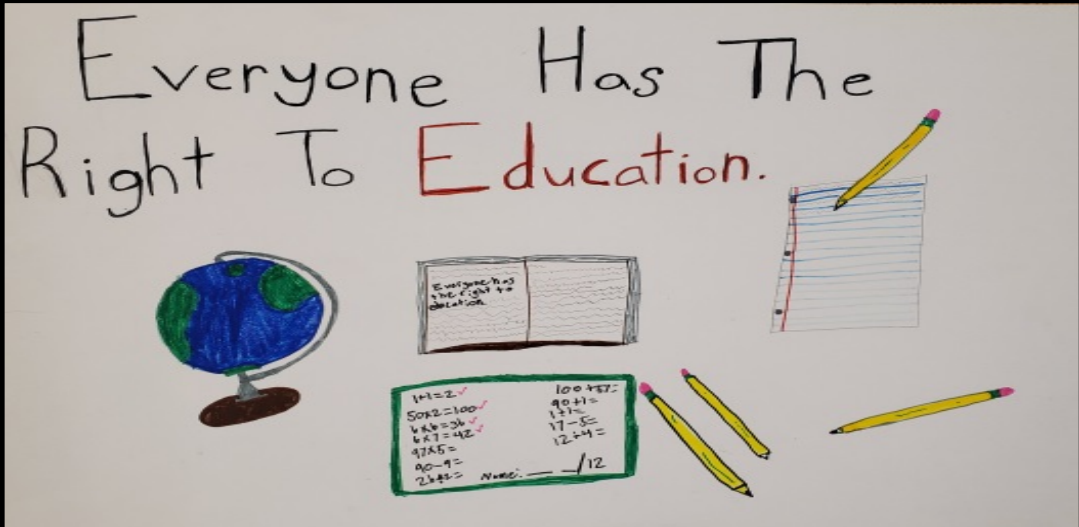 Everyone Has The
Right To Education.
Everyone has
the right to
1+1=2✓
50x2=100✓
6x6=36✓
6x7=42✓
97x5=
90-9=
100+51=
90+1=
1+1=
17-5=
12÷4=
Name: __ __/12